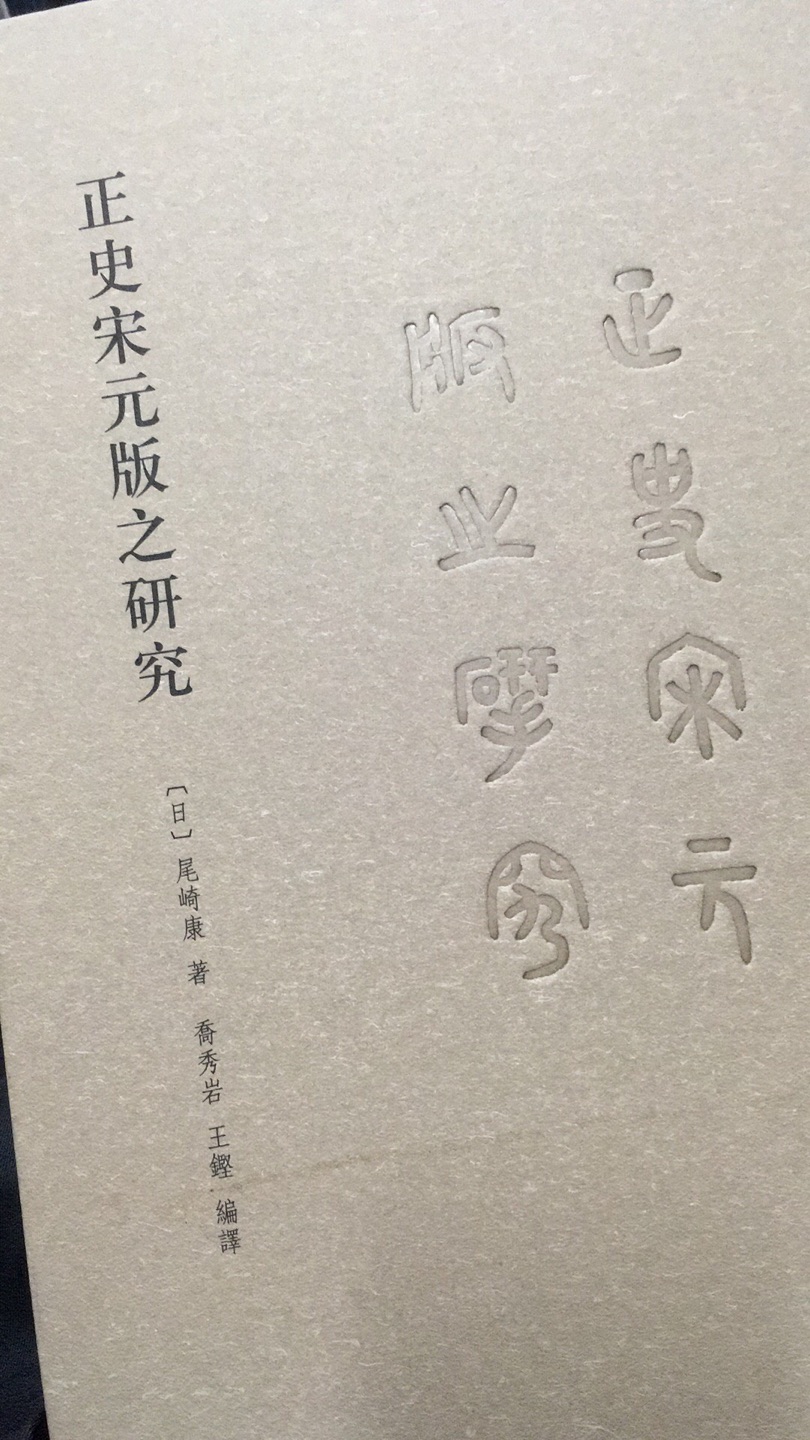 正史宋元
版之揅究
正史宋元版之研究
〔日〕尾崎康 著 喬秀岩 王鏗 編譯